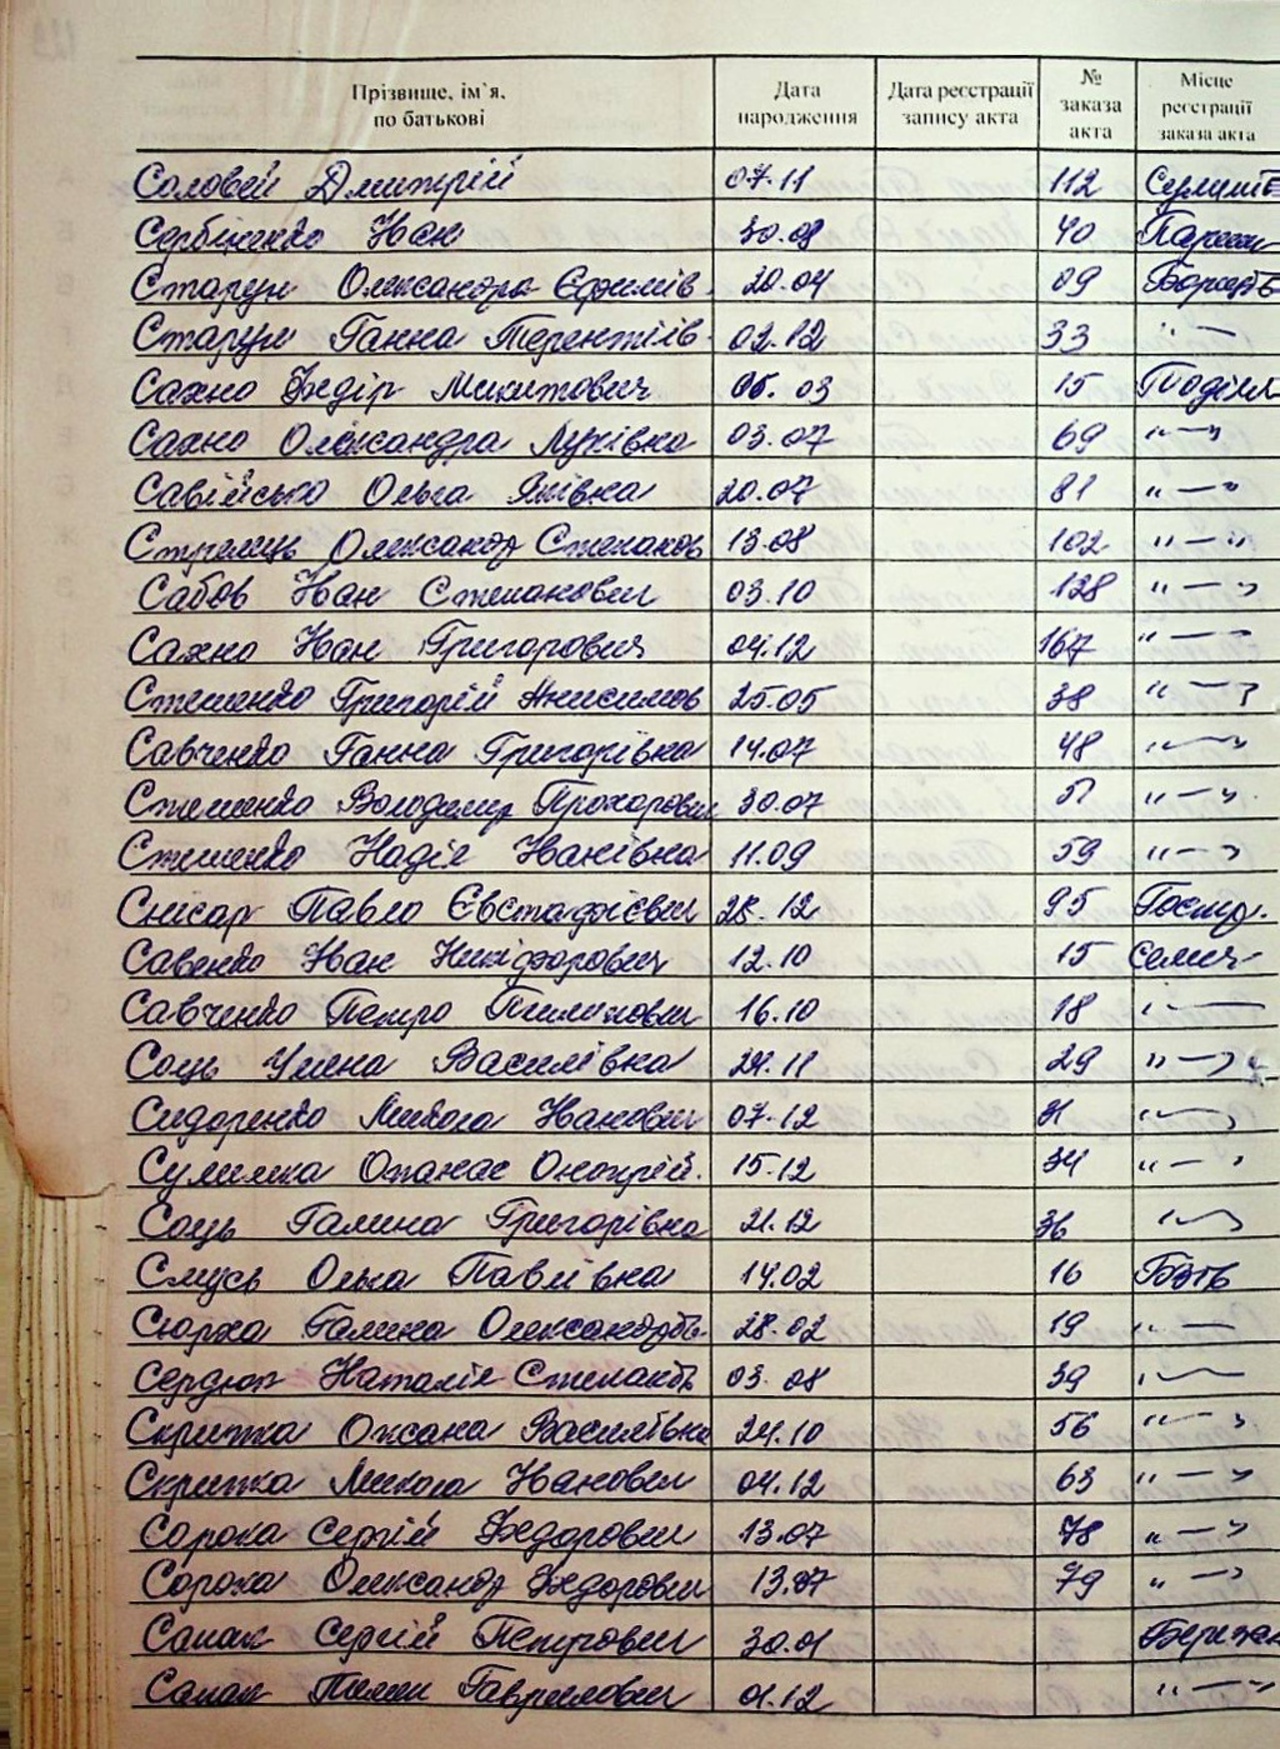 Прізвище, ім`я, по батькові Дата народження Дата реєстрації запису акта № заказа акта Місце реєстрації заказа акта
Соловей Дмитрій 07.11 112
Сербіненко Іван 30.08 40
Старун Олександра Єфимів. 20.04 09
Старун Ганна Терентіїв. 02.12 33 "—
Сахно Федір Микитович 05.03 15 Поділл
Сахно Олександра Луківна 03.07 69 "—"
Савійсько Ольга Яківна 20.07 81 "—"
Стрілець Олександр Степанов 13.08 102 "—"
Сабов Іван Степанович 03.10 128 "—"
Сахно Іван Григорович 04.12 167 "—"
Стешенко Григорій Анисимов 25.05 38 "—"
Савченко Ганна Григорівна 14.07 48 "—"
Стешенко Володимир Прохорович 30.07 51 "—"
Стешенко Надія Іванівна 11.09 59 "—"
Снісар Павло Євстафієвич 28.12 95
Савенко Іван Никіфорович 12.10 15 Семен
Савченко Петро Пилипович 16.10 18 "—
Соць Уляна Василівна 24.11 29 "—"
Сидоренко Микола Іванович 07.12 31 "—"
Сулимка Опанас Онопрій. 15.12 34 "—"
Соць Галина Григорівна 21.12 36 "—"
Смусь Ольга Павлівна 14.02 16
Сюрха Галина Олександрів. 28.02 19 "—
Сердюк Наталія Степанів 03.08 39 "—
Скрипка Оксана Василівна 24.10 56 "—"
Скрипка Микола Іванович 04.12 63 "—"
Сорока Сергій Федорович 13.07 78 "—"
Сорока Олександр Федорович 13.07 79 "—"
Сапак Сергій Петрович 30.01 Бережа
Сапак Пилип Гаврилович 01.12 "—"